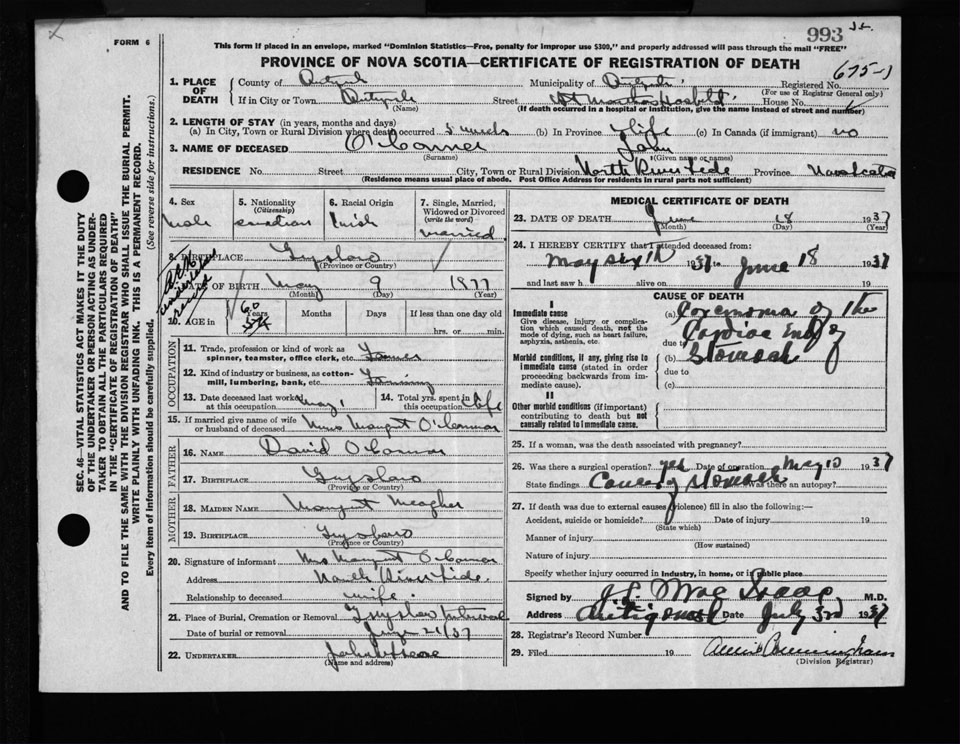 993
FORM 6
This form if placed in an envelope, marked "Dominion Statistics—Free, penalty for improper use $300," and properly addressed will pass through the mail "FREE"
PROVINCE OF NOVA SCOTIA—CERTIFICATE OF REGISTRATION OF DEATH
675-1
1. PLACE OF DEATH
County of
Municipality of
Registered No.
(For use of Registrar General only)
If in City or Town
(Name)
Street St Martha's Hospital House No.
(If death occurred in a hospital or institution, give the name instead of street and number)
2. LENGTH OF STAY (in years, months and days)
(a) In City, Town or Rural Division where death occurred 5 weeks (b) In Province life (c) In Canada (if immigrant) no
3. NAME OF DECEASED O'Connor John
(Surname) (Given name or names)
RESIDENCE No. Street City, Town or Rural Division North River Side Province Nova Scotia
(Residence means usual place of abode. Post Office Address for residents in rural parts not sufficient)
4. Sex
male
5. Nationality
(Citizenship)
Canadian
6. Racial Origin
Irish
7. Single, Married, Widowed or Divorced
(write the word)
married
8. BIRTHPLACE
(Province or Country)
DATE OF BIRTH May 9 1877
(Month) (Day) (Year)
10. AGE in 60 Years Months Days If less than one day old
hrs. or min.
OCCUPATION
11. Trade, profession or kind of work as spinner, teamster, office clerk, etc. Farmer
12. Kind of industry or business, as cotton-mill, lumbering, bank, etc. Farming
13. Date deceased last worked at this occupation May 1
14. Total yrs. spent in this occupation life
15. If married give name of wife or husband of deceased Mrs Margret O'Connor
FATHER
16. NAME David O'Connor
17. BIRTHPLACE
(Province or Country)
MOTHER
18. MAIDEN NAME Margret Meagher
19. BIRTHPLACE
(Province or Country)
20. Signature of informant Mrs Margret O'Connor
Address North River Side.
Relationship to deceased wife.
21. Place of Burial, Cremation or Removal
Date of burial or removal June 21/37
22. UNDERTAKER
(Name and address)
MEDICAL CERTIFICATE OF DEATH
23. DATE OF DEATH June 18 1937
(Month) (Day) (Year)
24. I HEREBY CERTIFY that I attended deceased from:
May sixth 1937 to June 18 1937
and last saw h alive on 19
CAUSE OF DEATH
I
Immediate cause
Give disease, injury or complication which caused death, not the mode of dying, such as heart failure, asphyxia, asthenia, etc.
(a) Carcinoma of the
due to Cardiac End of
Morbid conditions, if any, giving rise to immediate cause (stated in order proceeding backwards from immediate cause).
(b) Stomach
due to
(c)
II
Other morbid conditions (if important) contributing to death but not causally related to immediate cause.
25. If a woman, was the death associated with pregnancy?
26. Was there a surgical operation? yes Date of operation May 10 1937
State findings Cancer of stomach Was there an autopsy?
27. If death was due to external causes (violence) fill in also the following:—
Accident, suicide or homicide? Date of injury 19
(State which)
Manner of injury
(How sustained)
Nature of injury
Specify whether injury occurred in industry, in home, or in public place
Signed by J.L. MacIsaac M.D.
Address Antigonish Date July 3rd 1937
28. Registrar's Record Number
29. Filed 19 Annie Cunningham
(Division Registrar)
SEC. 46—VITAL STATISTICS ACT MAKES IT THE DUTY OF THE UNDERTAKER OR PERSON ACTING AS UNDERTAKER TO OBTAIN ALL THE PARTICULARS REQUIRED IN THE "CERTIFICATE OF REGISTRATION OF DEATH"
AND TO FILE THE SAME WITH THE DIVISION REGISTRAR WHO SHALL ISSUE THE BURIAL PERMIT.
WRITE PLAINLY WITH UNFADING INK. THIS IS A PERMANENT RECORD.
Every item of Information should be carefully supplied. (See reverse side for instructions.)